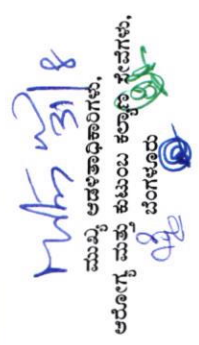 31/8
ಮುಖ್ಯ ಆಡಳಿತಾಧಿಕಾರಿಗಳು,
ಆರೋಗ್ಯ ಮತ್ತು ಕುಟುಂಬ ಕಲ್ಯಾಣ ಸೇವೆಗಳು,
ಬೆಂಗಳೂರು